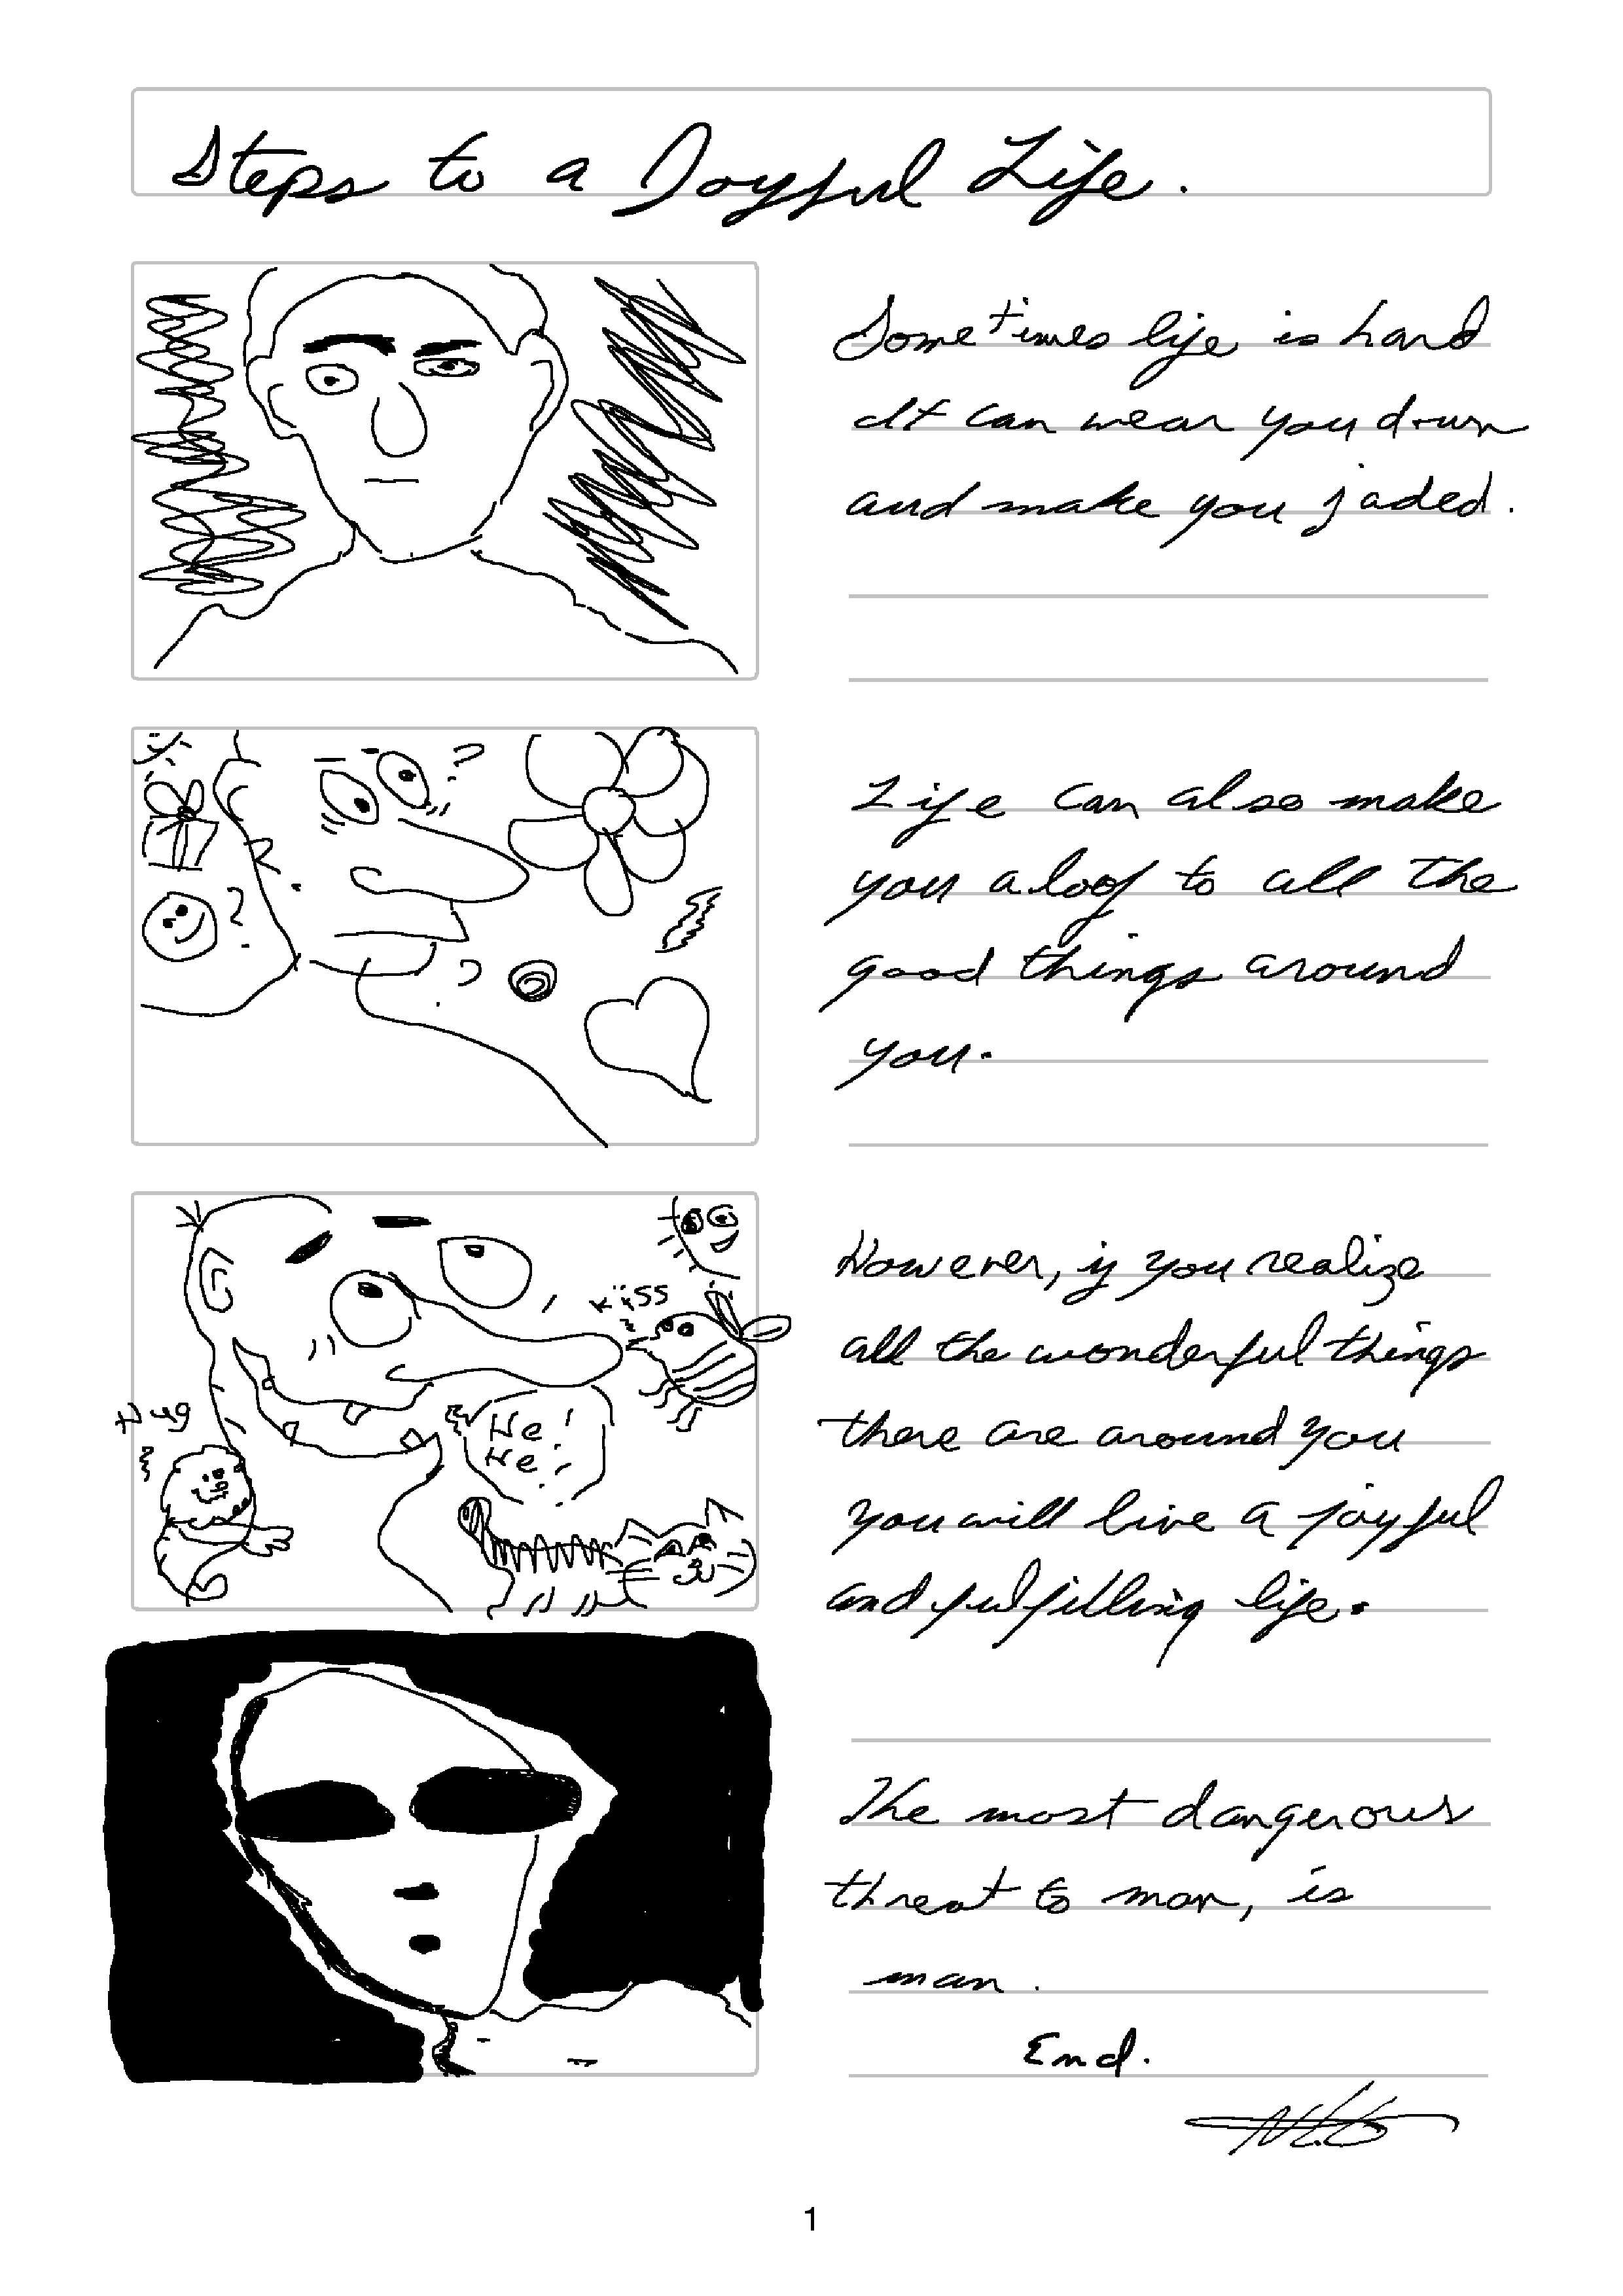 Steps to a Joyful Life.
Sometimes life is hard
It can wear you down
and make you jaded.
?
?
?
?
Life can also make
you aloof to all the
good things around
you.
Kiss
Hug
He!
He!
However, if you realize
all the wonderful things
there are around you
you will live a joyful
and fulfilling life.
The most dangerous
threat to man, is
man.
End.
1